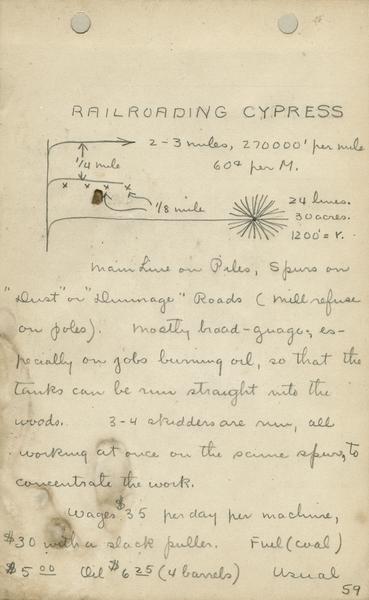 RAILROADING CYPRESS
2-3 miles, 270000' per mile
60¢ per M.
1/4 mile
x x x x
1/8 mile
24 lines.
30 acres.
1200' = r.
Main Line on Piles, Spurs on
"Dust" or "Dunnage" Roads (mill refuse
on poles). Mostly broad-guage, es-
pecially on jobs burning oil, so that the
tanks can be run straight into the
woods. 3-4 skidders are run, all
working at once on the same spur, to
concentrate the work.
Wages $35 per day per machine,
$30 with a slack puller. Fuel (coal)
$5 00 Oil $6 25 (4 barrels) Usual
59